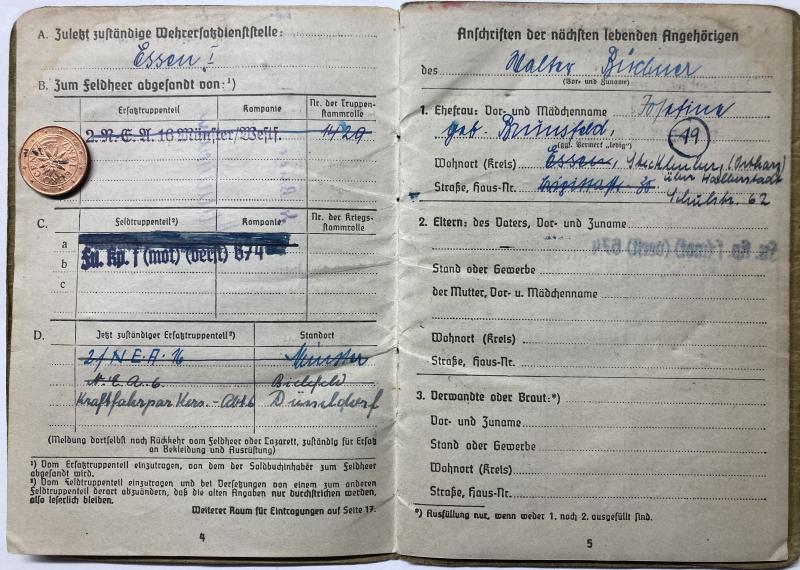 A. Zuletzt zuständige Wehrersatzdienststelle:
Essen I
B. Zum Feldheer abgesandt von:¹)
Ersatztruppenteil
Kompanie
Nr. der Truppen-
stammrolle
2. N. E. A. 16 Münster/Westf.
14/29
C.
Feldtruppenteil²)
Kompanie
Nr. der Kriegs-
stammrolle
a
b
Fu. Kp. f (mot) (verst) 674
c
D.
Jetzt zuständiger Ersatztruppenteil²)
Standort
2/ N. E. A. 16
Münster
N. E. A. 6
Bielefeld
Kraftfahrpark Abt. 6
Düsseldorf
(Meldung dortselbst nach Rückkehr vom Feldheer oder Lazarett, zuständig für Ersatz
an Bekleidung und Ausrüstung)
¹) Vom Ersatztruppenteil einzutragen, von dem der Soldbuchinhaber zum Feldheer
abgesandt wird.
²) Vom Feldtruppenteil einzutragen und bei Versetzungen von einem zum anderen
Feldtruppenteil derart abzuändern, daß die alten Angaben nur durchstrichen werden,
also leserlich bleiben.
Weiterer Raum für Eintragungen auf Seite 17.
4
Anschriften der nächsten lebenden Angehörigen
des Walter
(Vor- und Zuname)
1. Ehefrau: Vor- und Mädchenname Josefine
geb. Brunsfeld,
(ggf. Vermerk „ledig")
19
Wohnort (Kreis) Essen, Stecklenberg, (Ostharz)
über Halberstadt
Straße, Haus-Nr.
Schulstr. 62
2. Eltern: des Vaters, Vor- und Zuname
Fu. Kp. f (mot) (verst) 674
Stand oder Gewerbe
der Mutter, Vor- u. Mädchenname
Wohnort (Kreis)
Straße, Haus-Nr.
3. Verwandte oder Braut:*)
Vor- und Zuname
Stand oder Gewerbe
Wohnort (Kreis)
Straße, Haus-Nr.
*) Ausfüllung nur, wenn weder 1. noch 2. ausgefüllt sind.
5